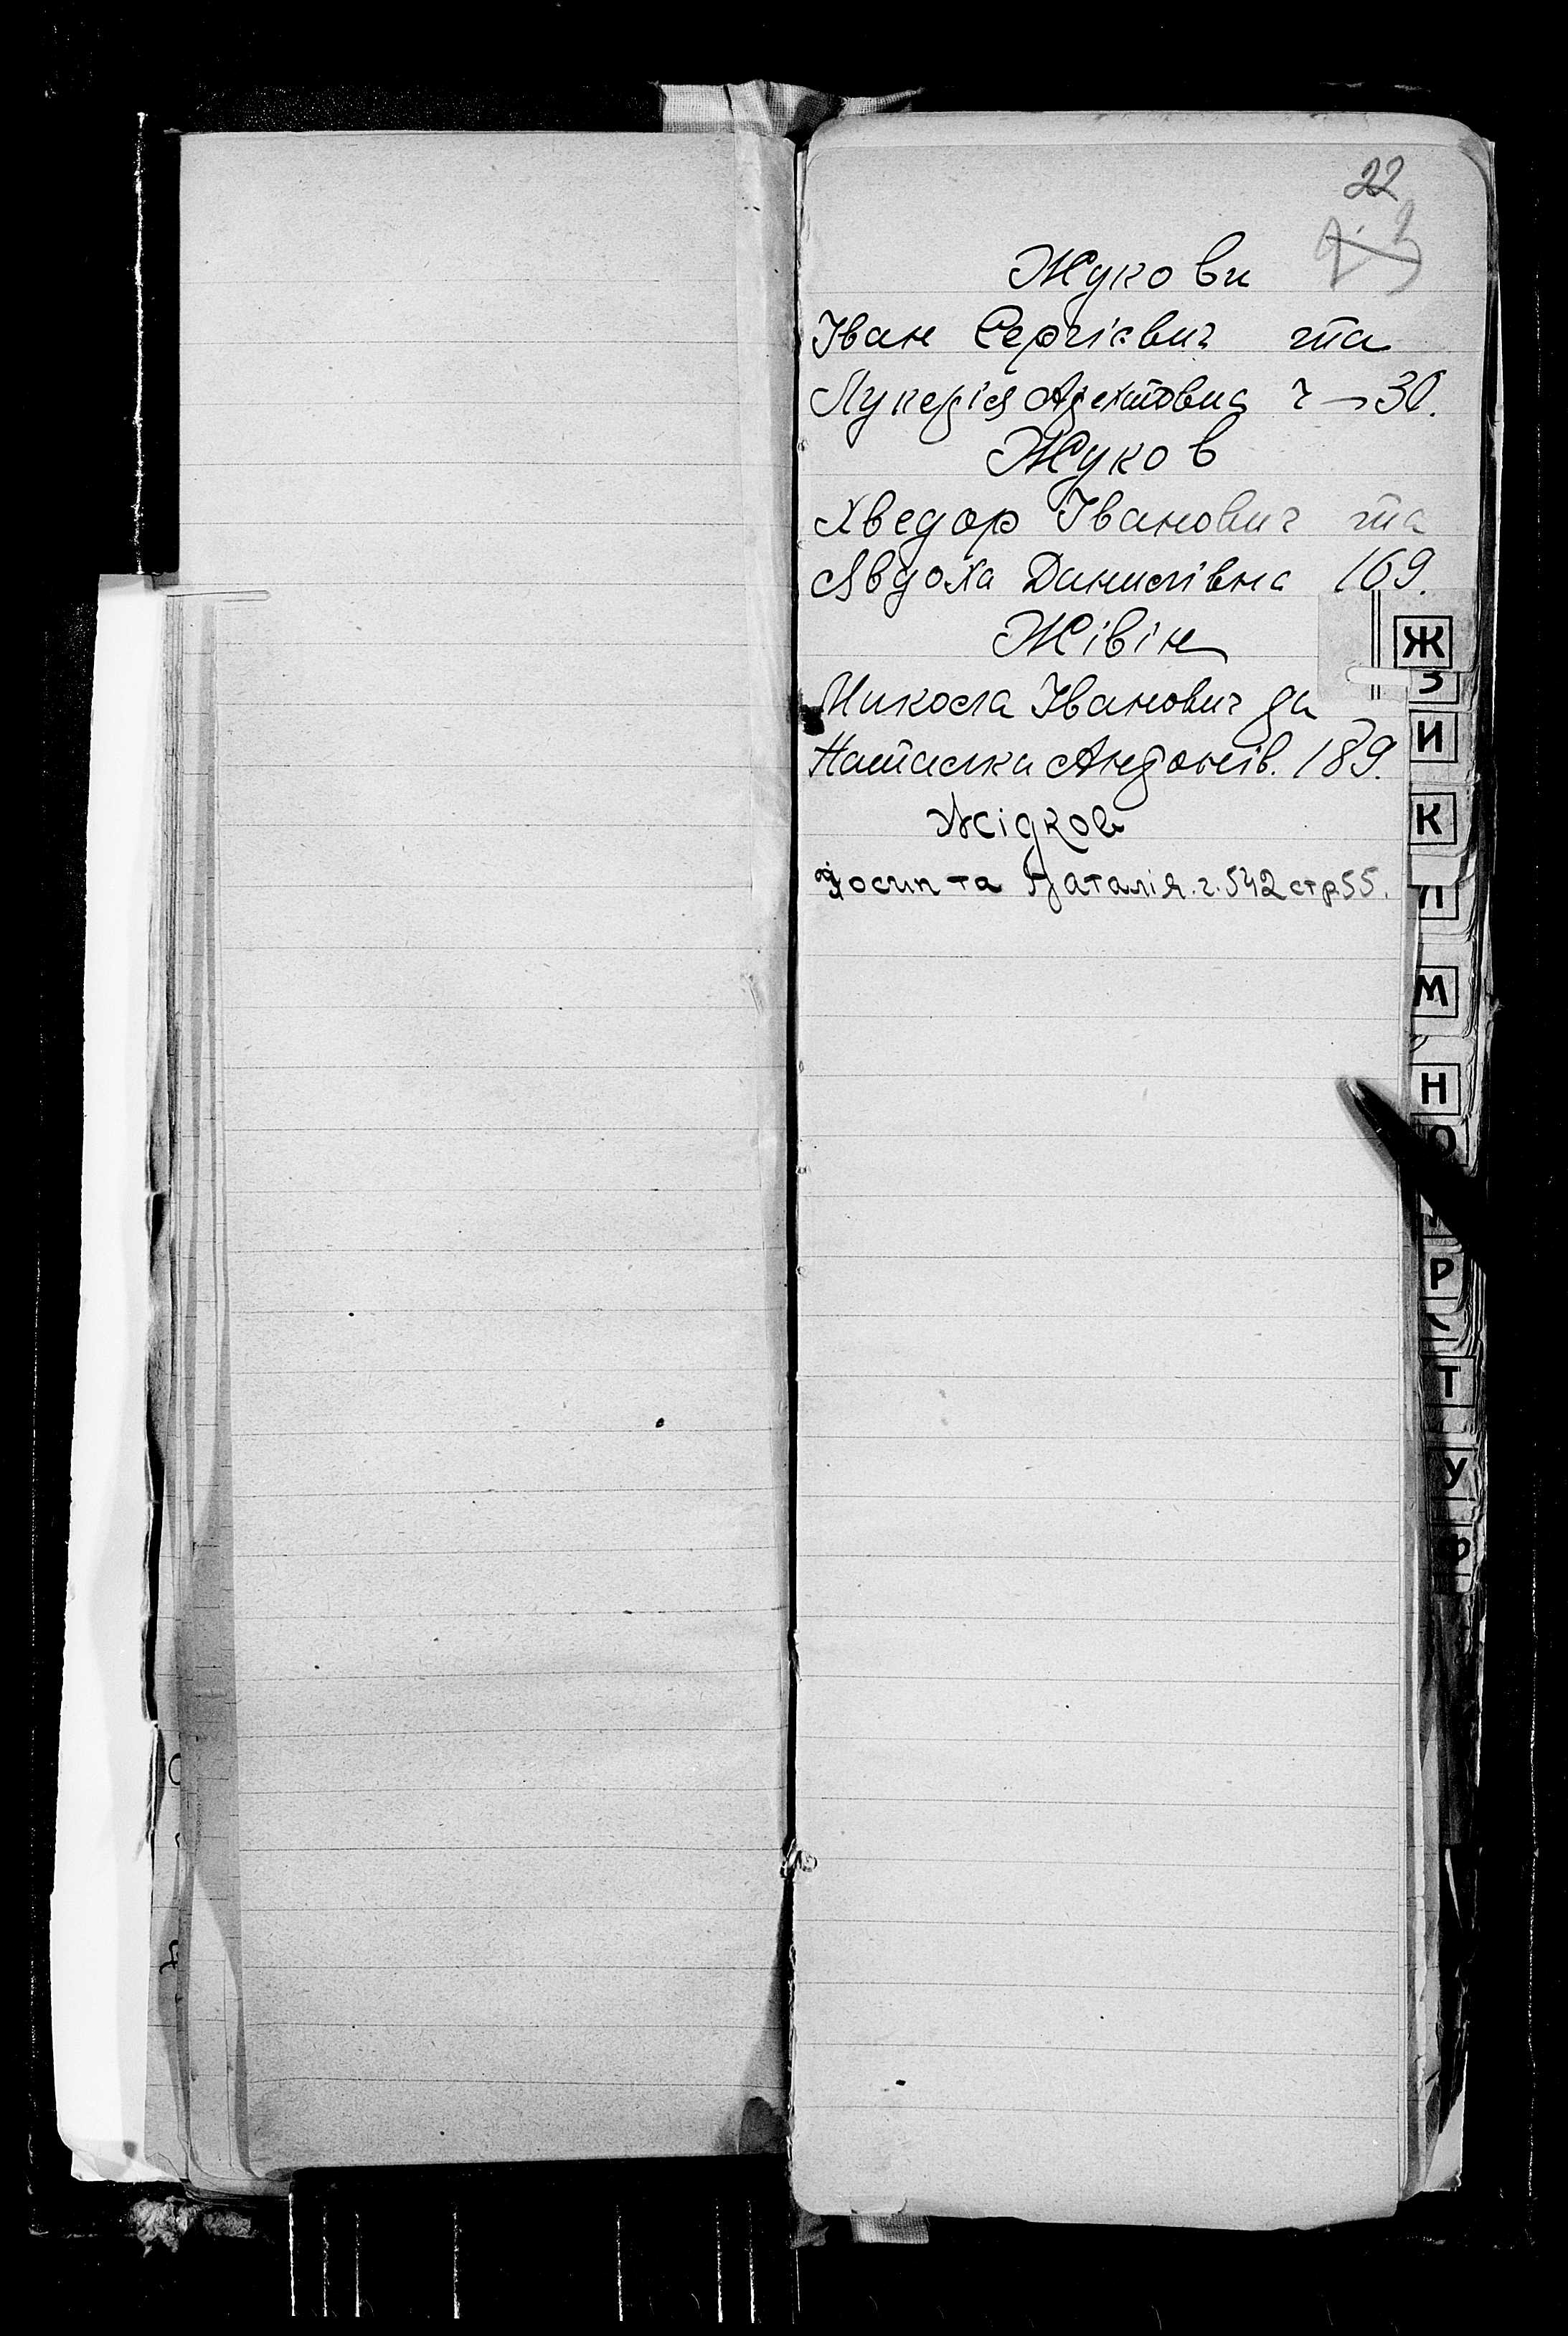 22
Жукови
Іван Сергієвич та
Лукерія Арехтовна ч 30.
Жуков
Хведор Іванович та
Явдоха Данилівна 169.
Жівін
Микола Іванович да
Наталка Андоніїв. 189.
Жідков
Йосип та Наталія. ч. 542 стр 55.
Ж
З
И
К
Л
М
Н
О
Р
Т
У
Ф